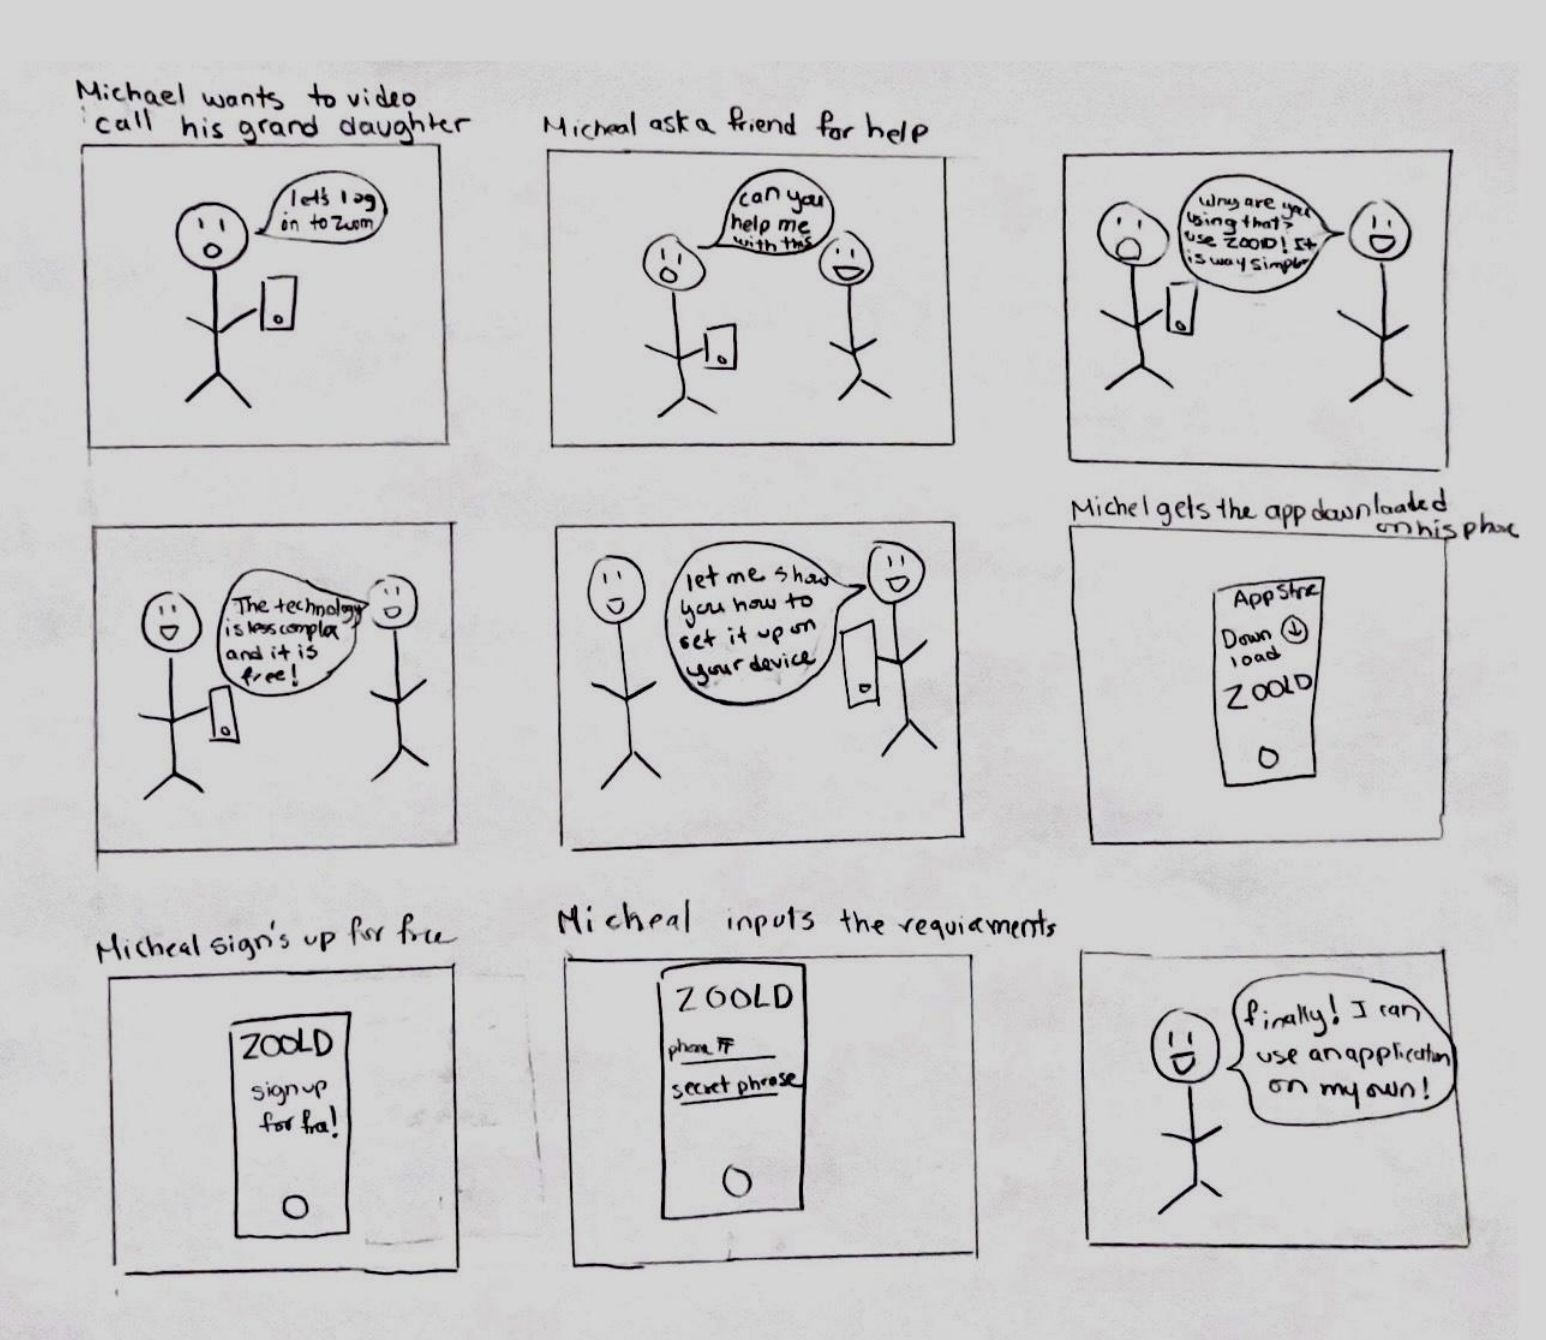 Michael wants to video
call his grand daughter
let's log
in to Zoom
Micheal ask a friend for help
can you
help me
with this
Why are you
using that?
use ZOOLD! It
is way simpler
The technology
is less complex
and it is
free!
let me show
you how to
set it up on
your device
Michel gets the app downloaded
on his phone
App Store
Down
load
ZOOLD
Micheal sign's up for free
ZOOLD
sign up
for free!
Micheal inputs the requirements
ZOOLD
phone #
secret phrase
finally! I can
use an application
on my own!